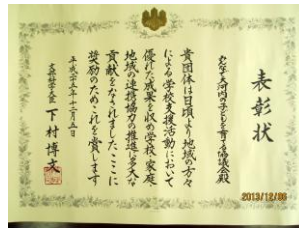 表彰状
大河内の子どもを育てる協議会殿
貴団体は日頃より地域の方々
による学校支援活動において
優れた成果を収め学校、家庭、
地域の連携協力の推進に多大な
貢献をなされました ここに
奨励のためこれを賞します
平成二十五年十二月五日
文部科学大臣 下村博文
2013/12/06